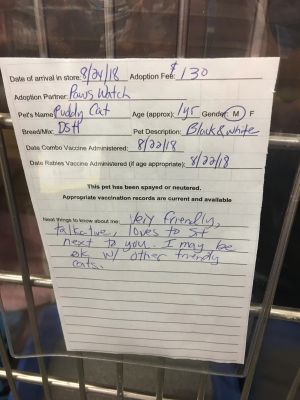 Date of arrival in store: 8/24/18 Adoption Fee: $130
Adoption Partner: Paws Watch
Pet's Name Puddy Cat Age (approx): 1yr Gender M F
Breed/Mix: DSH Pet Description: Black & white
Date Combo Vaccine Administered: 8/22/18
Date Rabies Vaccine Administered (if age appropriate): 8/22/18
This pet has been spayed or neutered.
Appropriate vaccination records are current and available
Neat things to know about me: Very friendly,
talkative, loves to sit
next to you. I may be
ok w/ other friendly
cats.